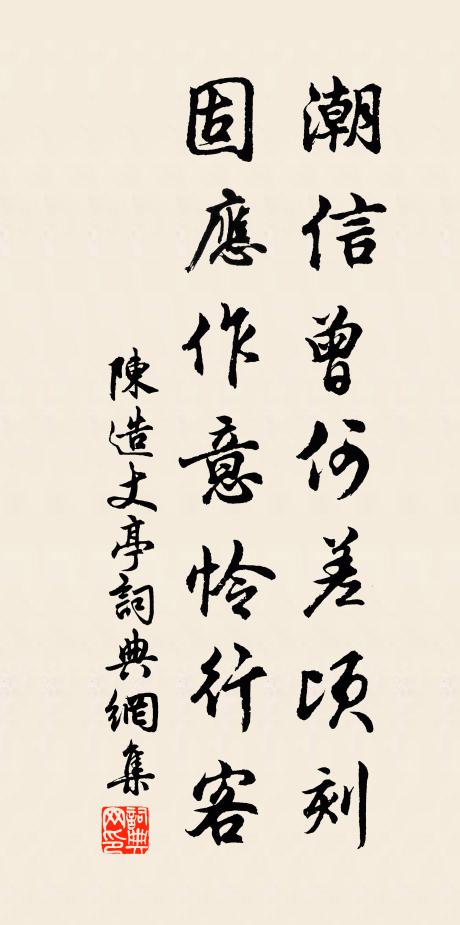 潮信曾何差頃刻
固應作意怜行客
陳造丈亭詞典網集
詞典網印